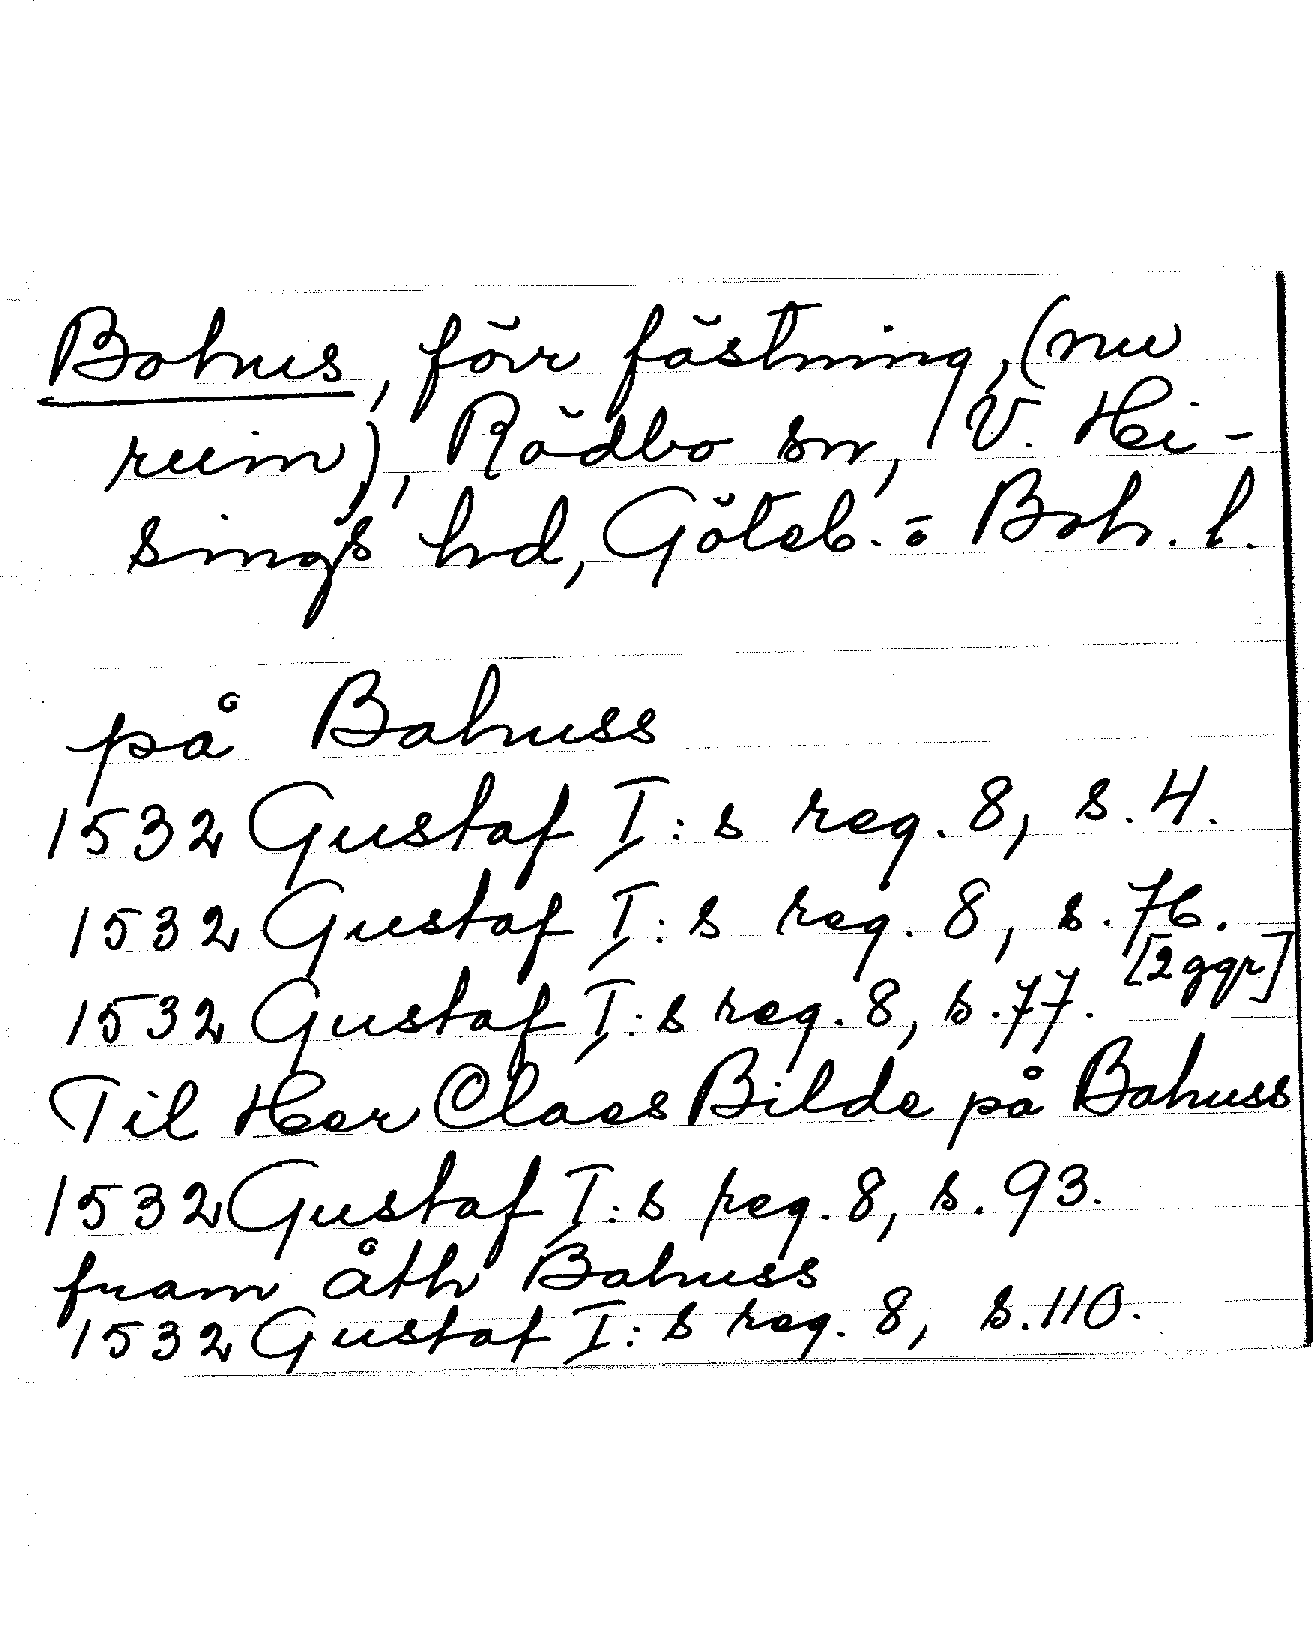 Bohus, förr fästning, (nu
ruin), Rödbo sn, V. Hi-
sings hd, Göteb. o. Boh. l.
på Bahuss
1532 Gustaf I:s reg. 8, s. 4.
1532 Gustaf I:s reg. 8, s. 76.
[2 ggr]
1532 Gustaf I:s reg. 8, s. 77.
Til Her Claes Bilde på Bahuss
1532 Gustaf I:s reg. 8, s. 93.
fram åth Bahuss
1532 Gustaf I:s reg. 8, s. 110.